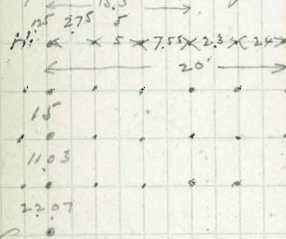 15.5
125 275 5
5 7.55 2.3 2.4
20'
15
11.03
22.07